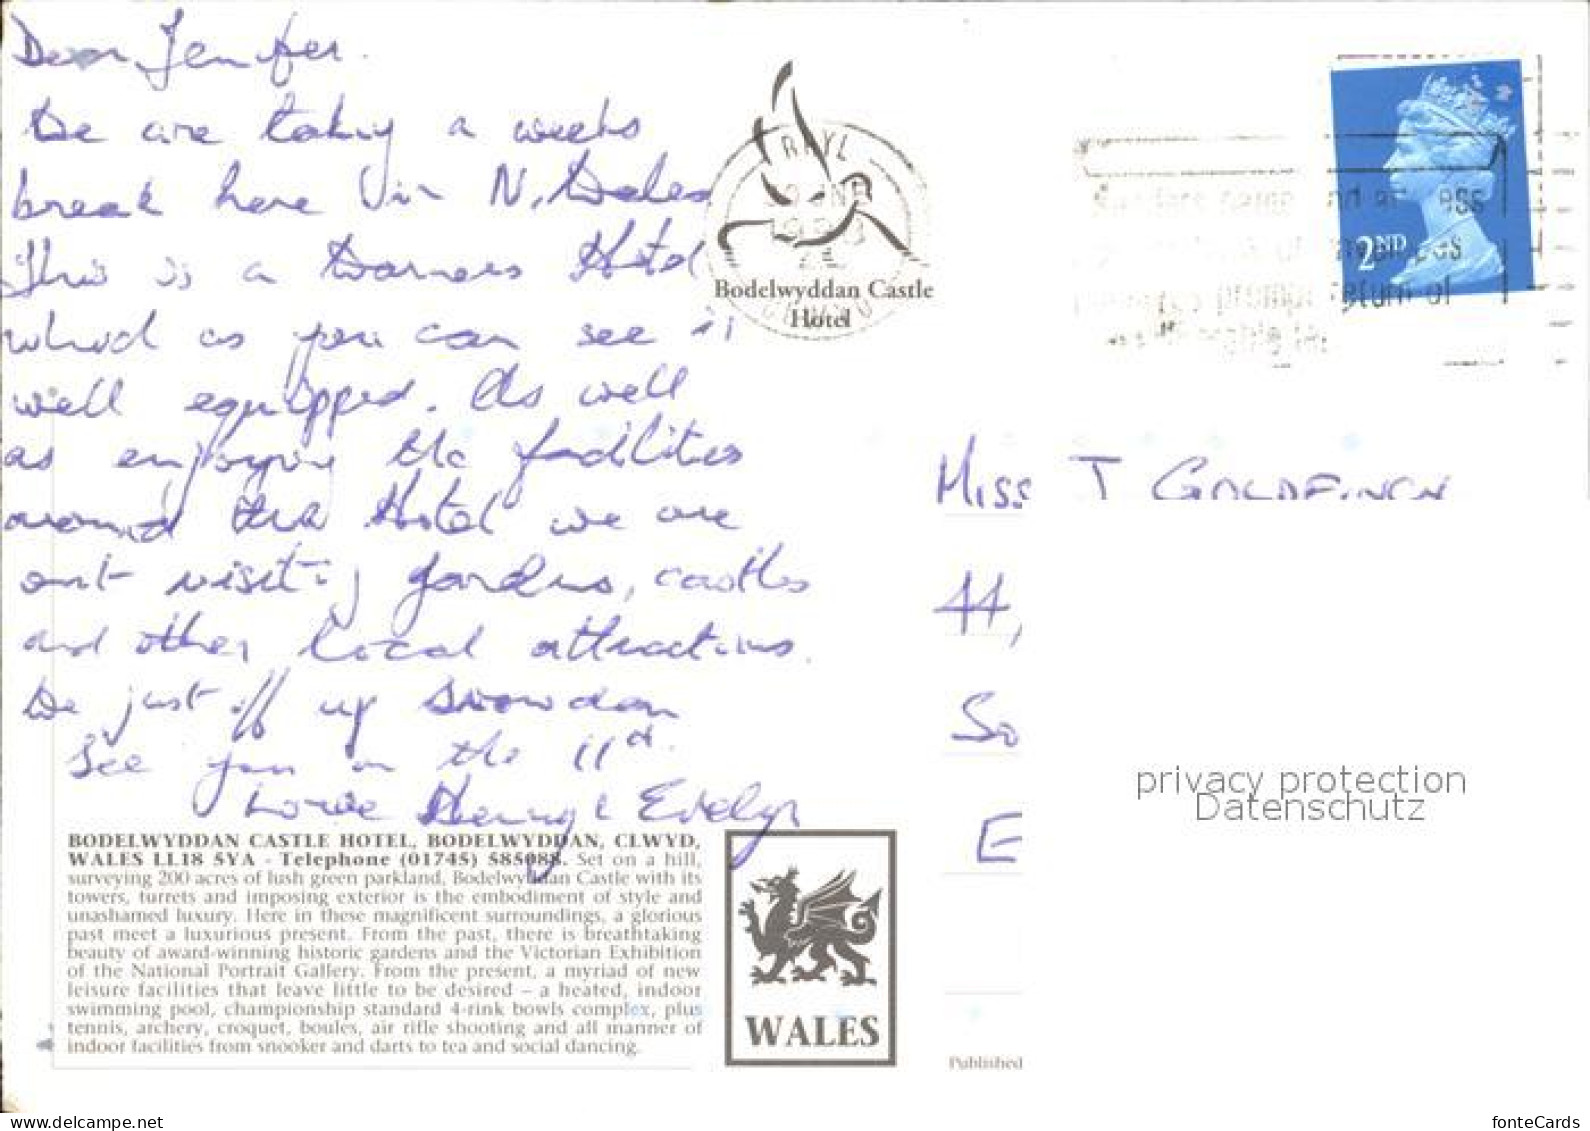 Dear Jenifer.
We are taking a weeks
break here in N. Wales
This is a Warners Hotel
which as you can see is
well equipped. As well
as enjoying the facilities
around the Hotel we are
out visiting gardens, castles
and other local attractions.
We just off up Snowdon
See you on the 11th.
Love Henry & Evelyn
RHYL
Bodelwyddan Castle
Hotel
2ND
prompt return of
MISS J GOLDFINCH
44,
So
E
privacy protection
Datenschutz
BODELWYDDAN CASTLE HOTEL, BODELWYDDAN, CLWYD,
WALES LL18 5YA - Telephone (01745) 585088. Set on a hill,
surveying 200 acres of lush green parkland, Bodelwyddan Castle with its
towers, turrets and imposing exterior is the embodiment of style and
unashamed luxury. Here in these magnificent surroundings, a glorious
past meet a luxurious present. From the past, there is breathtaking
beauty of award-winning historic gardens and the Victorian Exhibition
of the National Portrait Gallery. From the present, a myriad of new
leisure facilities that leave little to be desired – a heated, indoor
swimming pool, championship standard 4-rink bowls complex, plus
tennis, archery, croquet, boules, air rifle shooting and all manner of
indoor facilities from snooker and darts to tea and social dancing.
WALES
Published
www.ansichtskartenversand.net
fonteCards